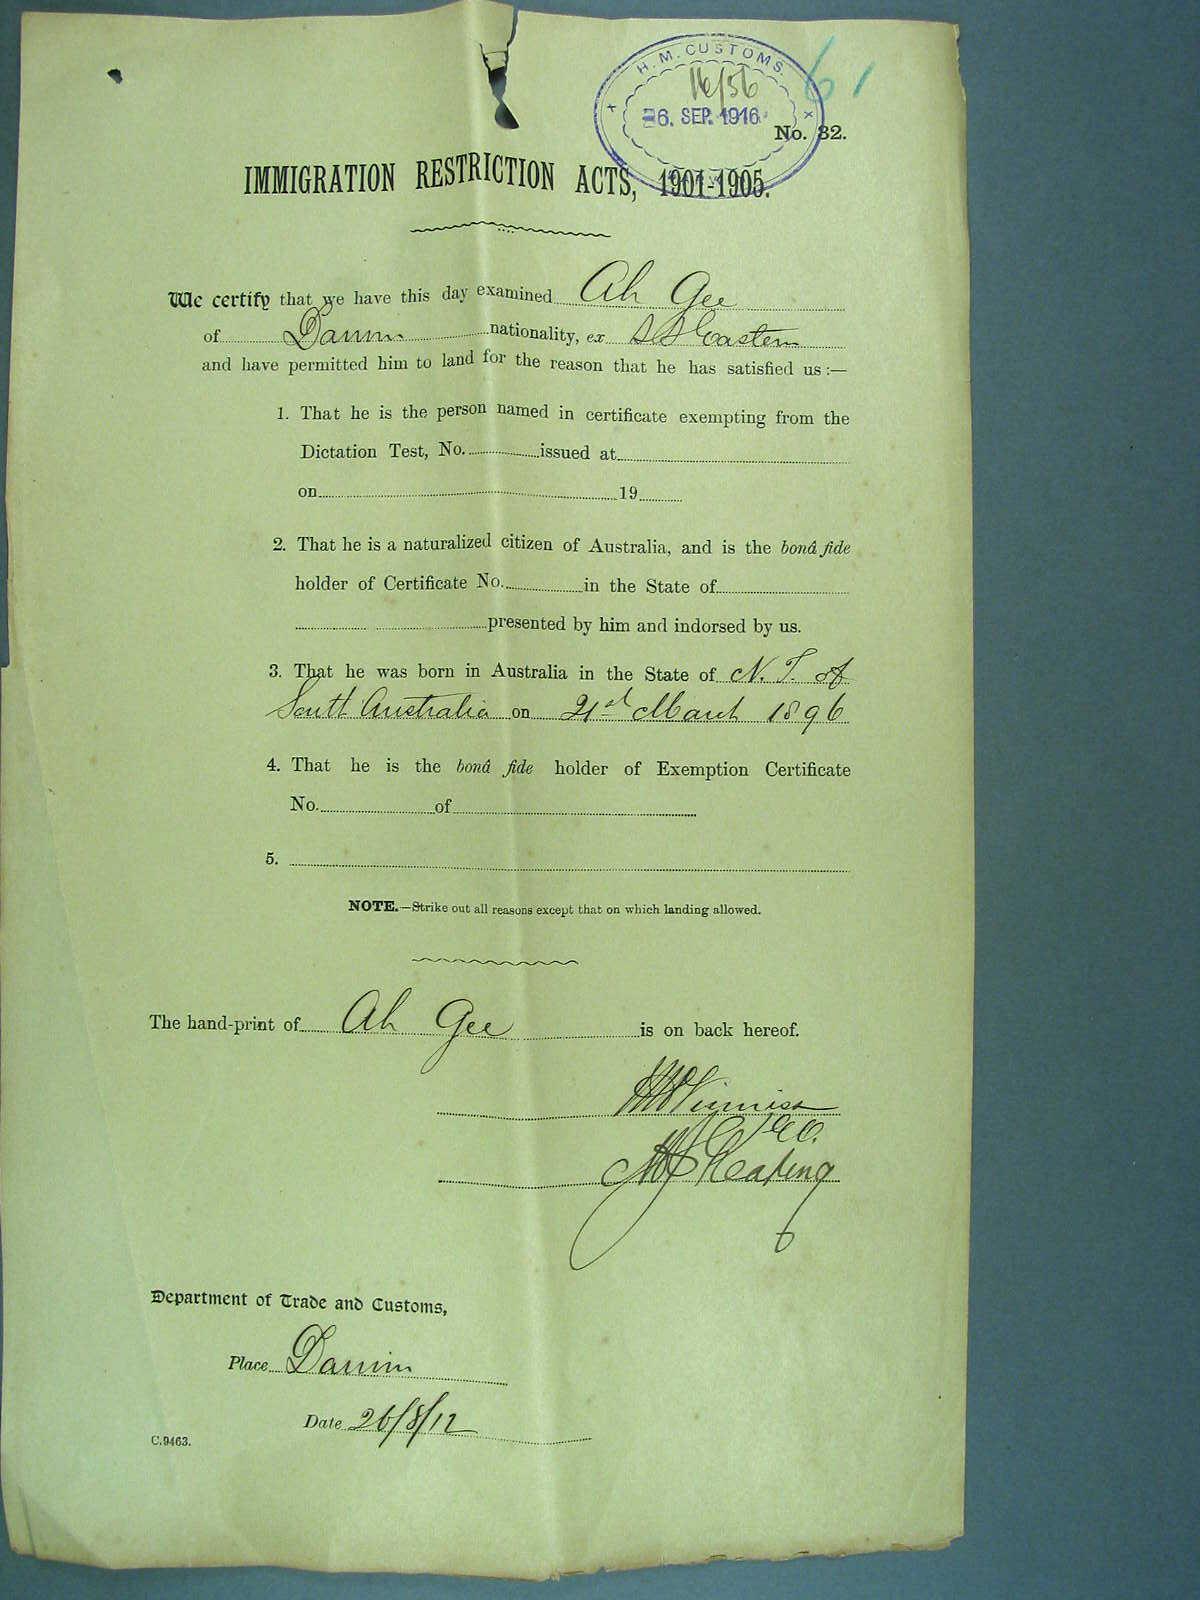 H. M. CUSTOMS.
16/56
61
6. SEP. 1916
No. 32.
IMMIGRATION RESTRICTION ACTS, 1901-1905.
We certify that we have this day examined Ah Gee
of Darwin nationality, ex SS Eastern
and have permitted him to land for the reason that he has satisfied us :—
1. That he is the person named in certificate exempting from the
Dictation Test, No. issued at
on 19
2. That he is a naturalized citizen of Australia, and is the bonâ fide
holder of Certificate No. in the State of
presented by him and indorsed by us.
3. That he was born in Australia in the State of N. T. of
South Australia on 21st March 1896
4. That he is the bonâ fide holder of Exemption Certificate
No. of
5.
NOTE.—Strike out all reasons except that on which landing allowed.
The hand-print of Ah Gee is on back hereof.
Keating
Department of Trade and Customs,
Place Darwin
Date 26/8/12
C.9463.